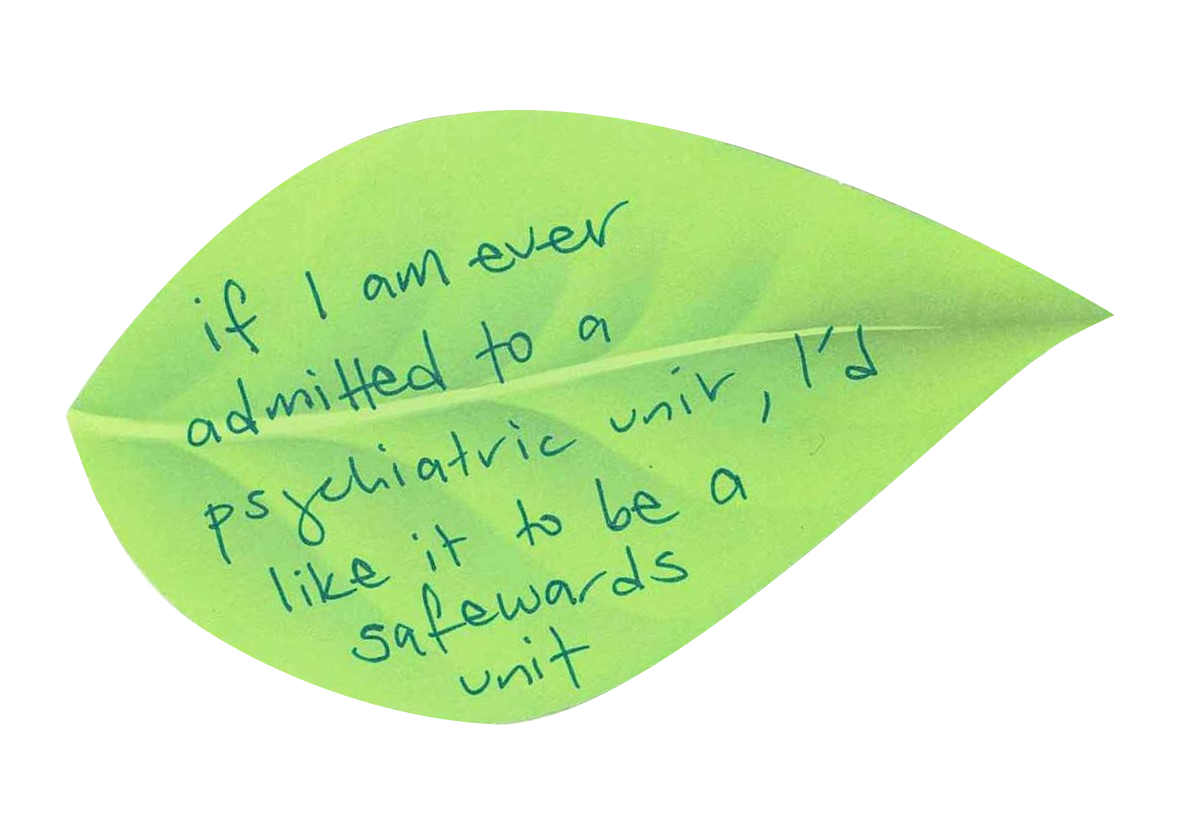 if I am ever
admitted to a
psychiatric unit, I'd
like it to be a
safewards
unit